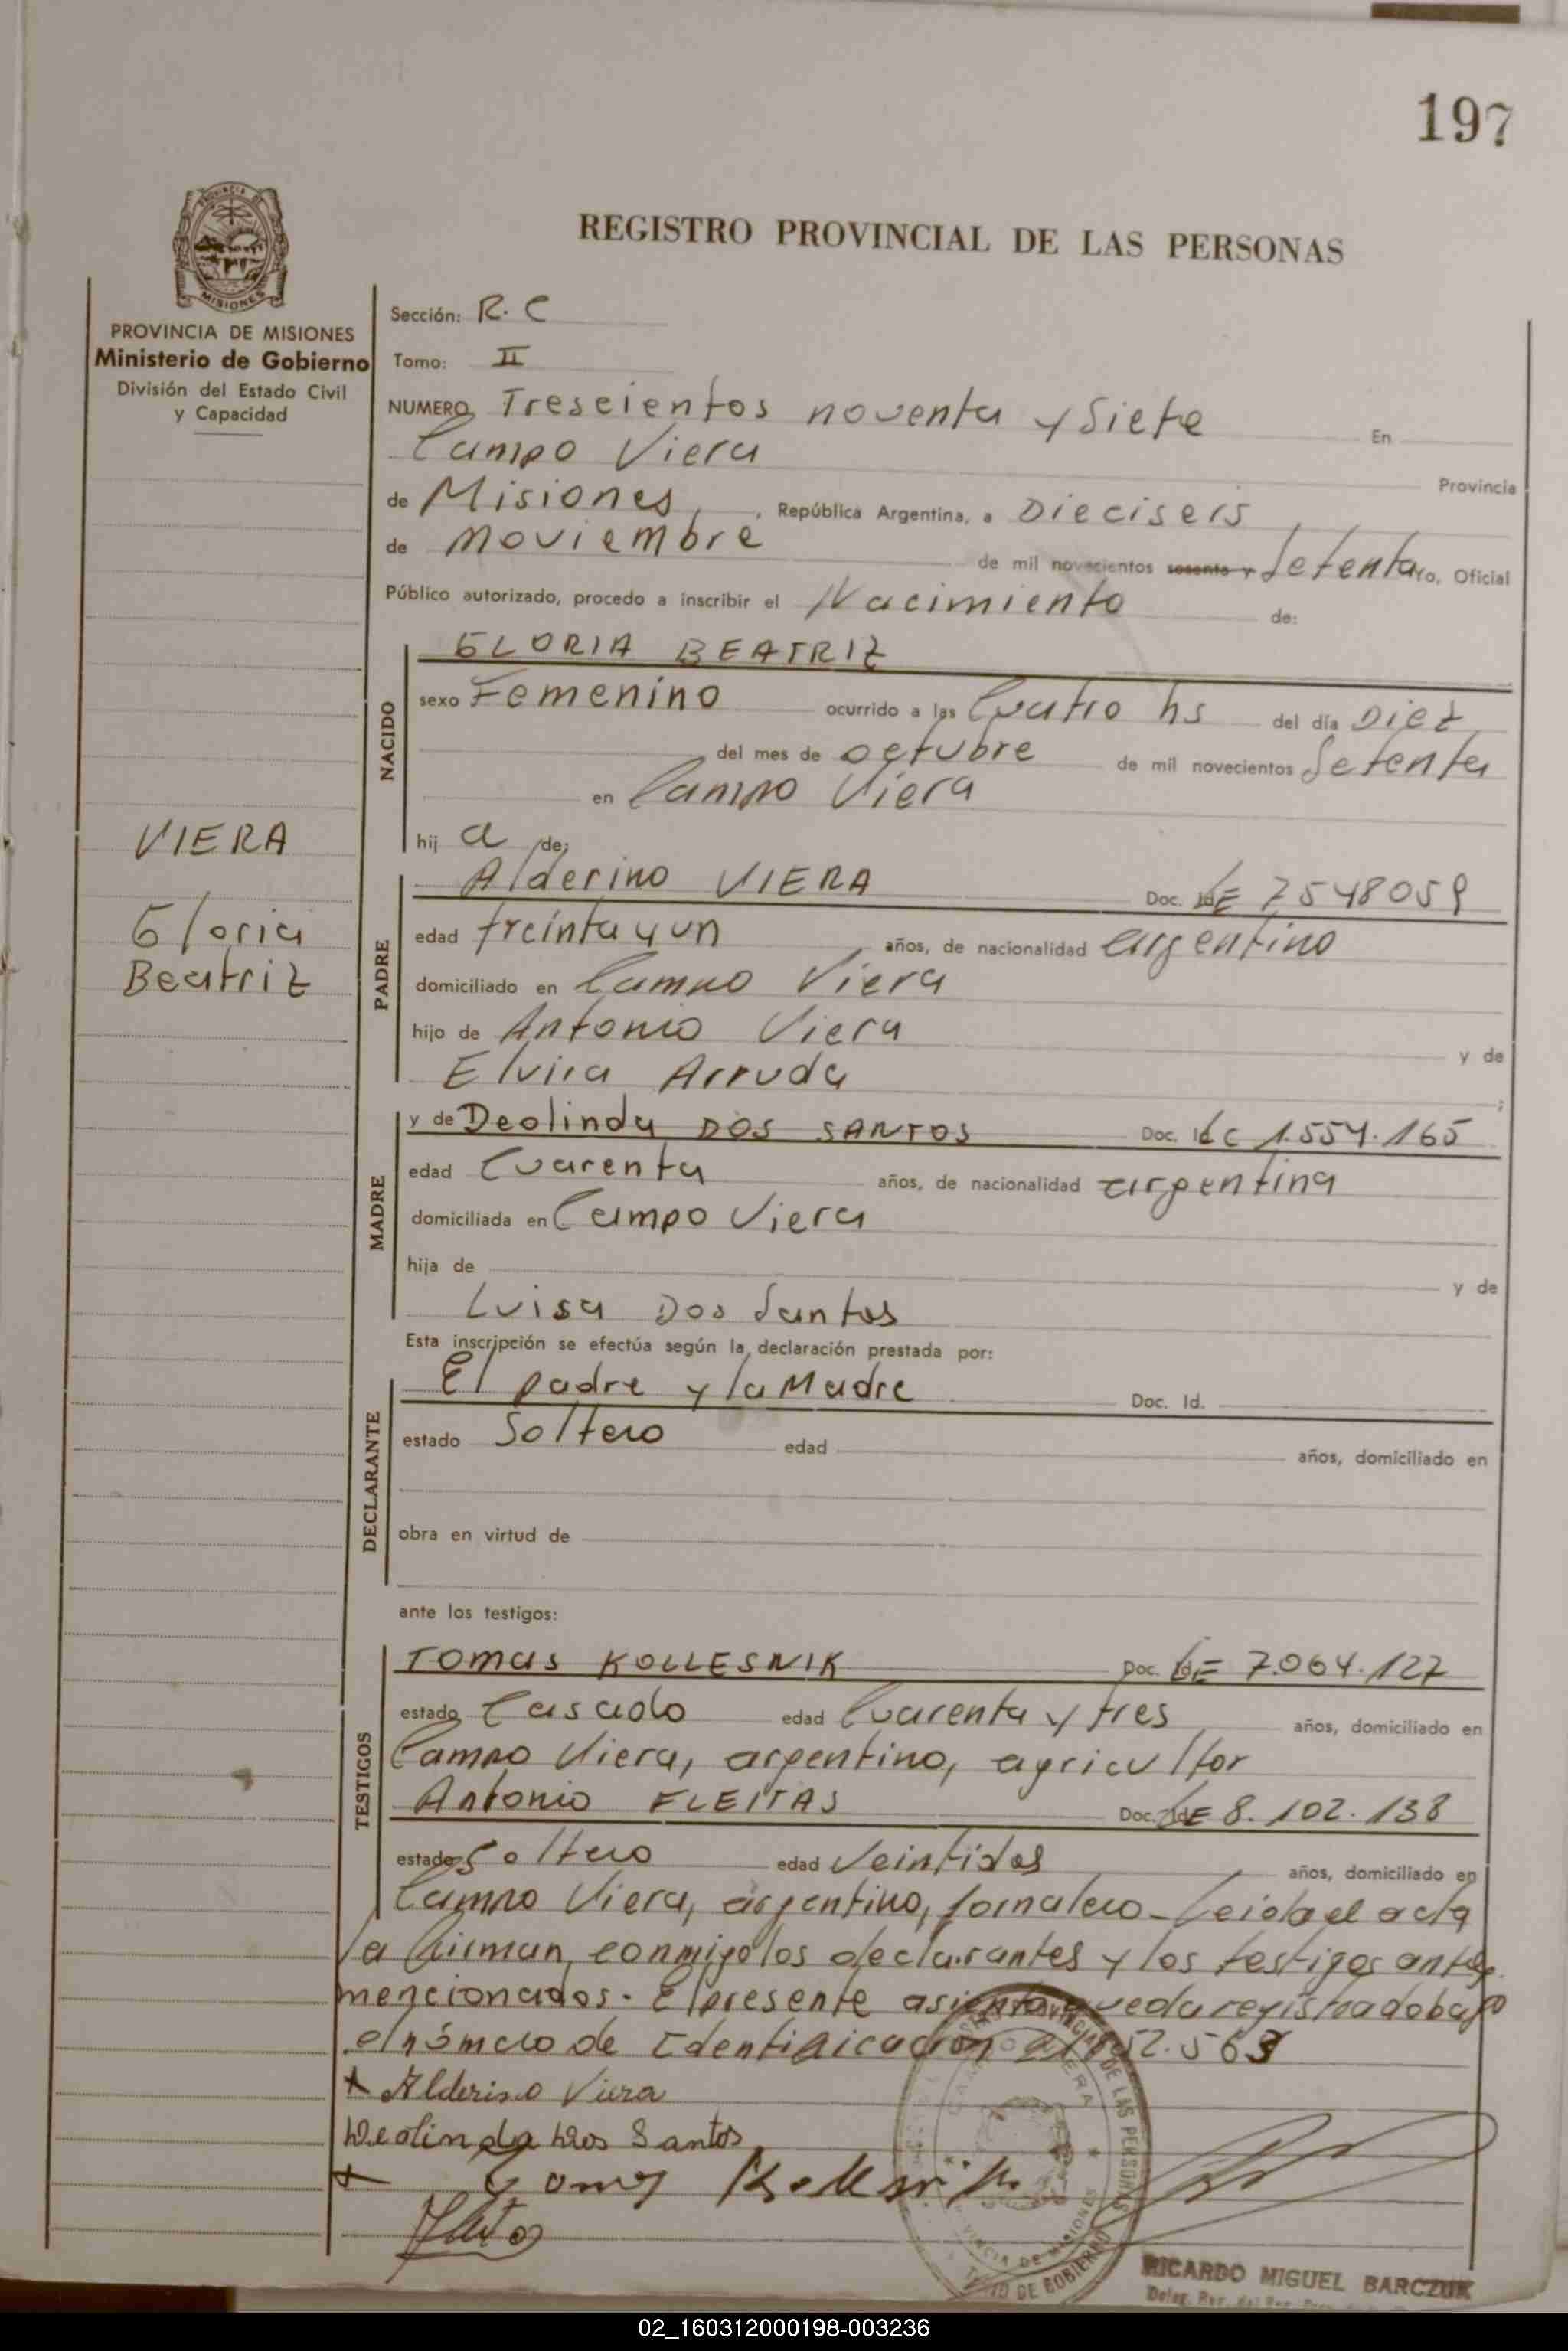 197
REGISTRO PROVINCIAL DE LAS PERSONAS
PROVINCIA
MISIONES
PROVINCIA DE MISIONES
Ministerio de Gobierno
División del Estado Civil
y Capacidad
VIERA
Gloria
Beatriz
Sección: R. C
Tomo: II
NUMERO Treseientos noventa y Siete En
Campo Viera Provincia
de Misiones, República Argentina, a Dieciseis
de noviembre de mil novecientos sesenta y Setenta yo, Oficial
Público autorizado, procedo a inscribir el Nacimiento de:
NACIDO
GLORIA BEATRIZ
sexo Femenino ocurrido a las Cuatro hs del día Diez
del mes de octubre de mil novecientos Setenta
en Campo Viera
hij a de:
PADRE
Alderino VIERA Doc. Id LE 7548059
edad treinta y un años, de nacionalidad argentino
domiciliado en Campo Viera
hijo de Antonio Viera y de
Elvira Arruda ;
MADRE
y de Deolinda DOS SANTOS Doc. Id LC 1.554.165
edad Cuarenta años, de nacionalidad argentina
domiciliada en Campo Viera
hija de y de
Luisa Dos Santos
Esta inscripción se efectúa según la declaración prestada por:
DECLARANTE
El padre y la Madre Doc. Id.
estado Soltero edad años, domiciliado en
obra en virtud de
ante los testigos:
TESTIGOS
Tomas KOLLESNIK Doc. Id LE 7.064.127
estado Casado edad Cuarenta y tres años, domiciliado en
Campo Viera, argentino, agricultor
Antonio FLEITAS Doc. Id LE 8.102.138
estado Soltero edad Veintidos años, domiciliado en
Campo Viera, argentino, Jornalero - Leida el acta
la firman conmigo los declarantes y los testigos antes
mencionados. El presente asiento queda registrado bajo
el número de Identificación 52.563
+ Alderino Viera
Deolinda Dos Santos
+ Kollesnik
DE LAS PERSONAS
PROVINCIA DE MISIONES
DE GOBIERNO
RICARDO MIGUEL BARCZUK
02_160312000198-003236